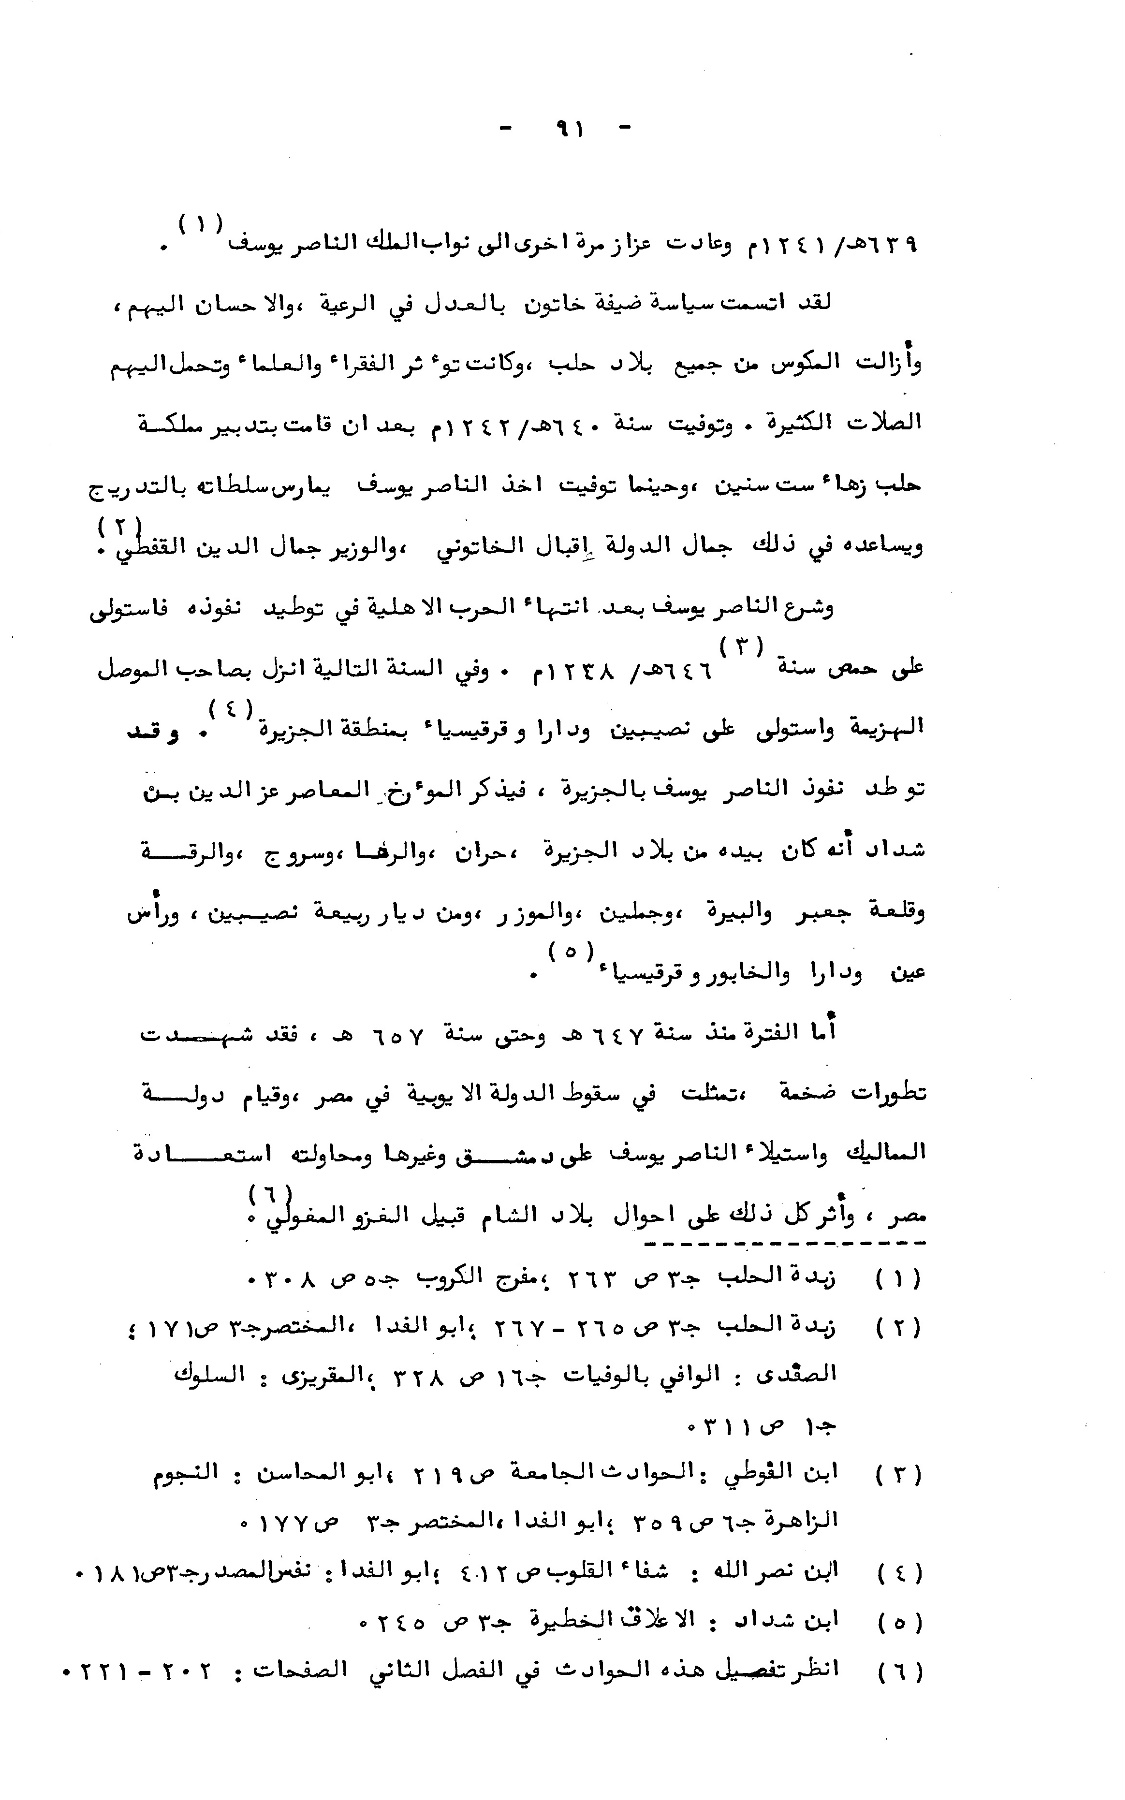 - ٩١ -
٦٣٩هـ/١٢٤١م وعادت عزاز مرة اخرى الى نواب الملك الناصر يوسف (١) .
لقد اتسمت سياسة ضيفة خاتون بالعدل في الرعية ،والاحسان اليهم ،
وأزالت المكوس من جميع بلاد حلب ،وكانت توءثر الفقراء والعلماء وتحمل اليهم
الصلات الكثيرة . وتوفيت سنة ٦٤٠هـ/١٢٤٢م بعد ان قامت بتدبير مملكة
حلب زهاء ست سنين ،وحينما توفيت اخذ الناصر يوسف يمارس سلطاته بالتدريج
ويساعده في ذلك جمال الدولة إقبال الخاتوني ،والوزير جمال الدين القفطي (٢) .
وشرع الناصر يوسف بعد انتهاء الحرب الاهلية في توطيد نفوذه فاستولى
على حمص سنة ٦٤٦هـ/ ١٢٣٨م (٣) . وفي السنة التالية انزل بصاحب الموصل
الهزيمة واستولى على نصيبين ودارا وقرقيسياء بمنطقة الجزيرة (٤) . وقد
توطد نفوذ الناصر يوسف بالجزيرة ، فيذكر الموءرخ المعاصر عز الدين بن
شداد أنه كان بيده من بلاد الجزيرة ،حران ،والرها ،وسروج ،والرقة
وقلعة جعبر والبيرة ،وجملين ،والموزر ،ومن ديار ربيعة نصيبين ، ورأس
عين ودارا والخابور وقرقيسياء (٥) .
أما الفترة منذ سنة ٦٤٧هـ وحتى سنة ٦٥٧ هـ ، فقد شهدت
تطورات ضخمة ،تمثلت في سقوط الدولة الايوبية في مصر ،وقيام دولة
المماليك واستيلاء الناصر يوسف على دمشق وغيرها ومحاولته استعادة
مصر ، وأثر كل ذلك على احوال بلاد الشام قبيل الغزو المغولي (٦) .
(١) زبدة الحلب جـ٣ ص ٢٦٣ ؛مفرج الكروب جـ٥ ص ٣٠٨ .
(٢) زبدة الحلب جـ٣ ص ٢٦٥ - ٢٦٧ ؛ابو الفدا ،المختصر جـ٣ ص١٧١ ؛
الصفدى : الوافي بالوفيات جـ١٦ ص ٣٢٨ ؛المقريزى : السلوك
جـ١ ص ٣١١ .
(٣) ابن الفوطي :الحوادث الجامعة ص ٢١٩ ؛ابو المحاسن : النجوم
الزاهرة جـ٦ ص ٣٥٩ ؛ابو الفدا ،المختصر جـ٣ ص١٧٧ .
(٤) ابن نصر الله : شفاء القلوب ص ٤١٢ ؛ابو الفدا : نفس المصدر جـ٣ ص١٨١ .
(٥) ابن شداد : الاعلاق الخطيرة جـ٣ ص ٢٤٥ .
(٦) انظر تفصيل هذه الحوادث في الفصل الثاني الصفحات : ٢٠٢ - ٢٢١ .